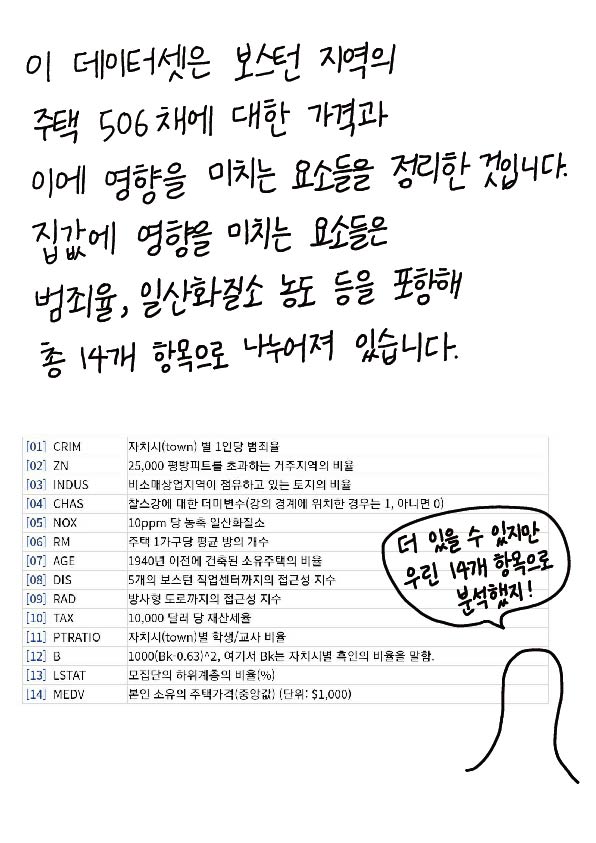 이 데이터셋은 보스턴 지역의
주택 506채에 대한 가격과
이에 영향을 미치는 요소들을 정리한 것입니다.
집값에 영향을 미치는 요소들은
범죄율, 일산화질소 농도 등을 포함해
총 14개 항목으로 나누어져 있습니다.
[01] CRIM 자치시(town) 별 1인당 범죄율
[02] ZN 25,000 평방피트를 초과하는 거주지역의 비율
[03] INDUS 비소매상업지역이 점유하고 있는 토지의 비율
[04] CHAS 찰스강에 대한 더미변수(강의 경계에 위치한 경우는 1, 아니면 0)
[05] NOX 10ppm 당 농축 일산화질소
[06] RM 주택 1가구당 평균 방의 개수
[07] AGE 1940년 이전에 건축된 소유주택의 비율
[08] DIS 5개의 보스턴 직업센터까지의 접근성 지수
[09] RAD 방사형 도로까지의 접근성 지수
[10] TAX 10,000 달러 당 재산세율
[11] PTRATIO 자치시(town)별 학생/교사 비율
[12] B 1000(Bk-0.63)^2, 여기서 Bk는 자치시별 흑인의 비율을 말함.
[13] LSTAT 모집단의 하위계층의 비율(%)
[14] MEDV 본인 소유의 주택가격(중앙값) (단위: $1,000)
더 있을 수 있지만
우린 14개 항목으로
분석했지!